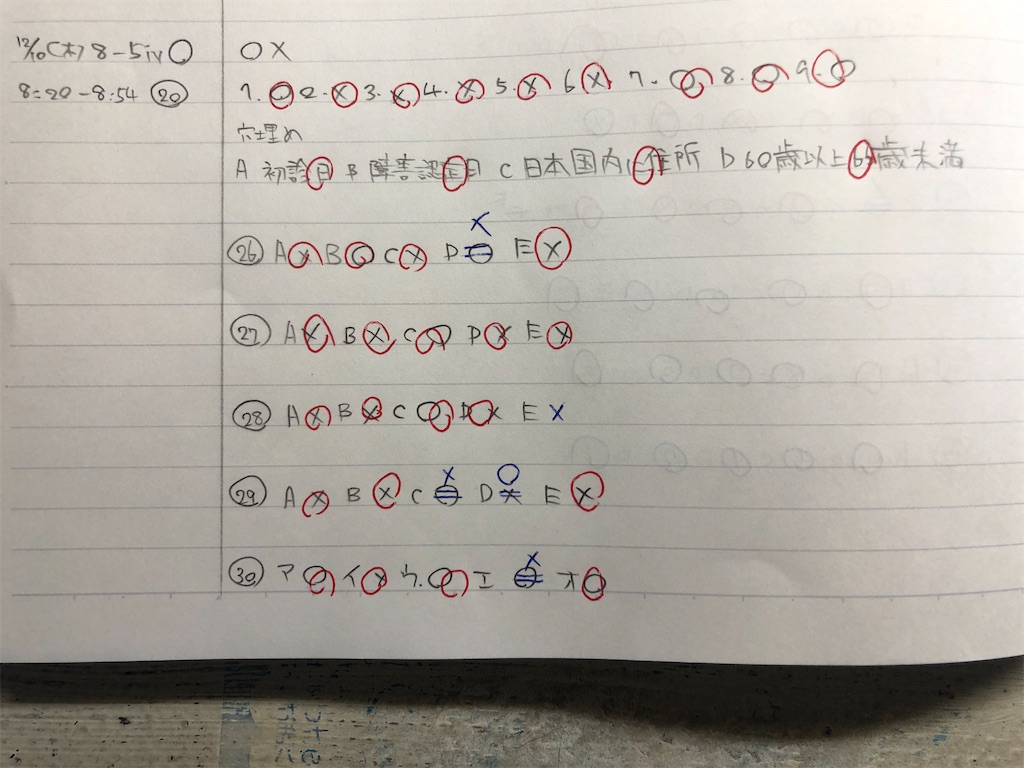 12/10(木) 8-5iv○
○×
8:20-8:54 ⑳
1.○ 2.× 3.× 4.× 5.× 6× 7.○ 8.○ 9.○
穴埋め
A 初診日 B 障害認定日 C 日本国内に住所 D 60歳以上65歳未満
×
㉖ A× B○ C× D○ E×
㉗ A× B× C○ D× E×
㉘ A× B× C○ D× E×
× ○
㉙ A× B× C○ D× E×
×
㉚ ア○ イ× ウ.○ エ○ オ○